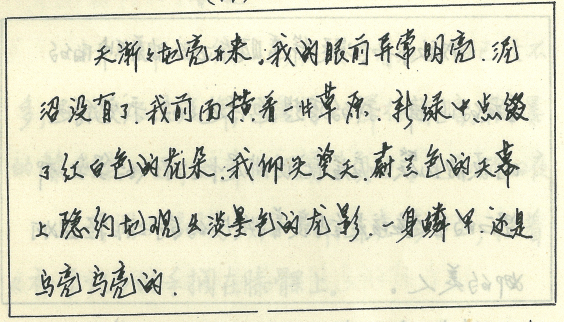 天渐々地亮起来。我的眼前异常明亮.泥
沼没有了.我前面横着一片草原.新绿中点缀
了红白色的花朵.我仰头望天.蔚兰色的天幕
上隐约地现出淡墨色的龙影.一身鳞甲.还是
乌亮乌亮的.